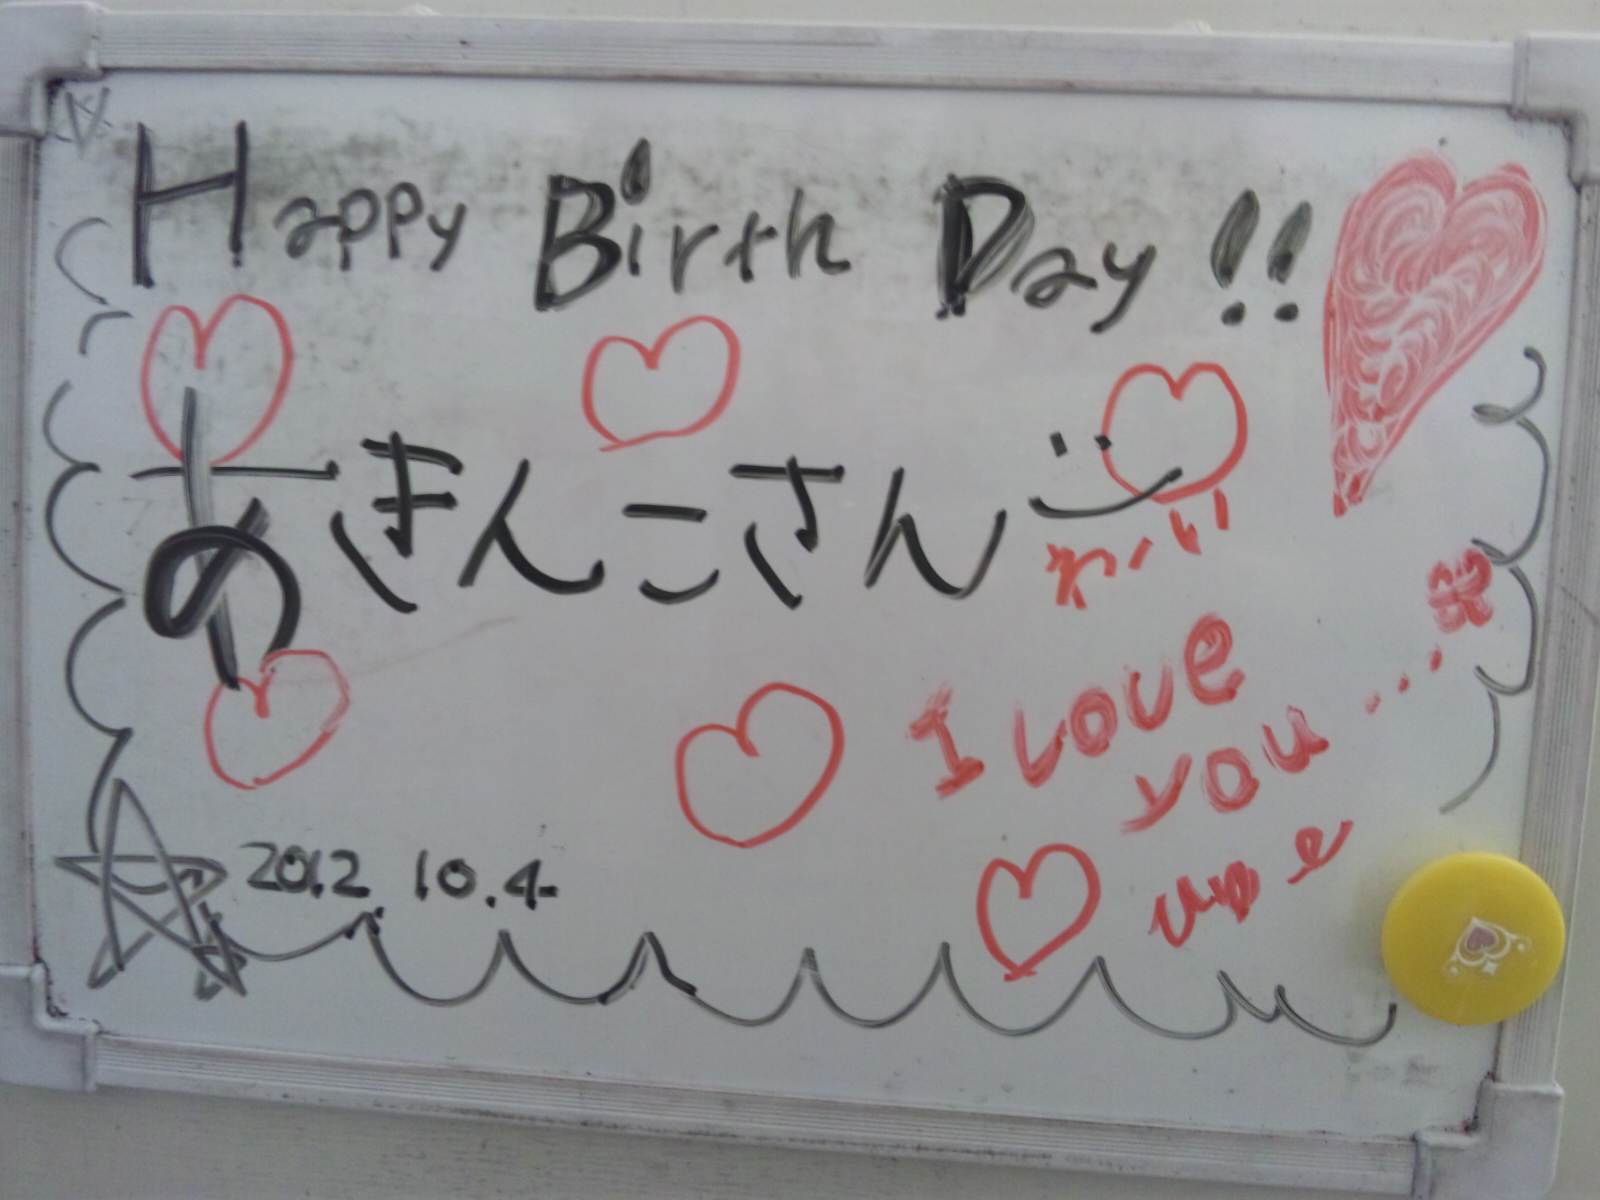 Happy Birth Day!!
あきんこさん
わーい
I Love
you...
2012.10.4.